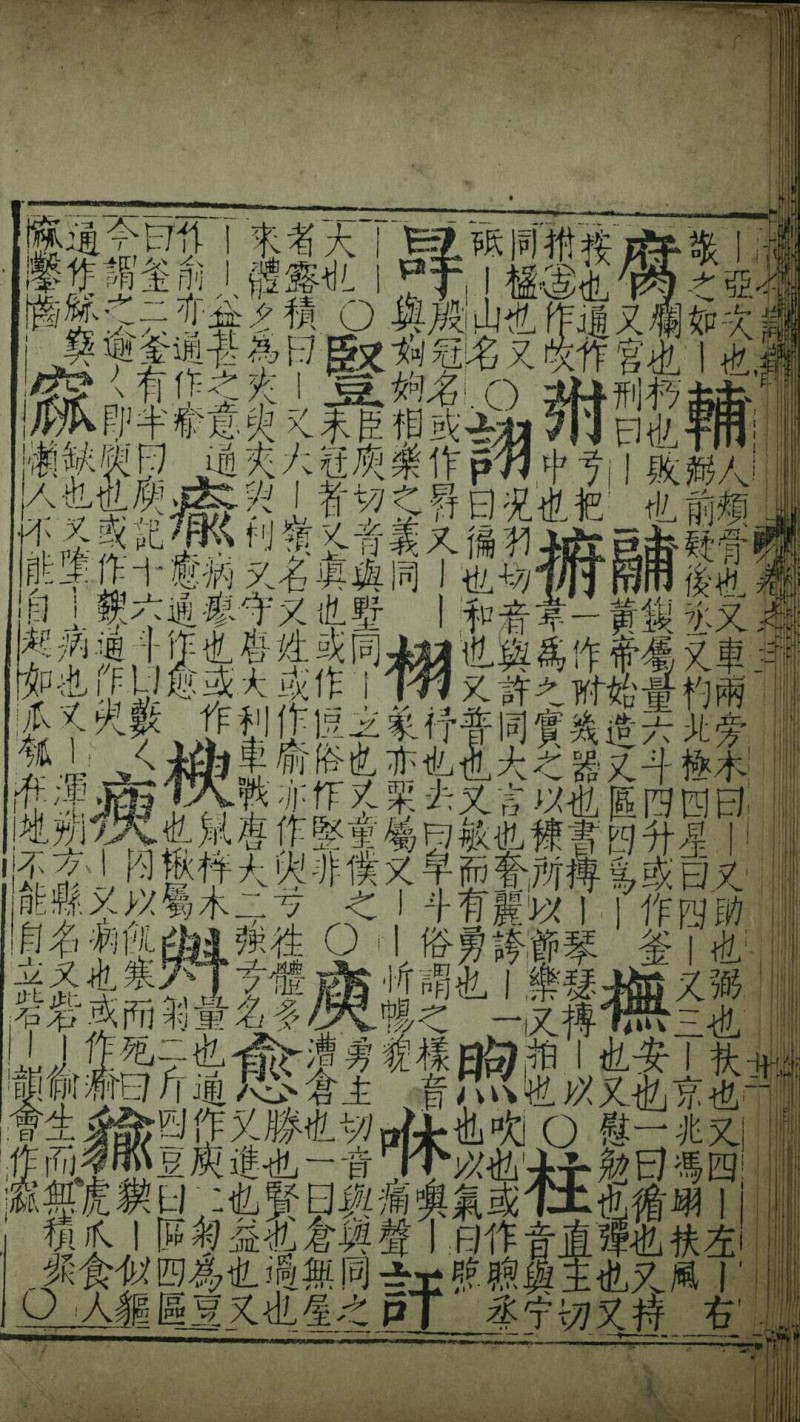 ｜亞次也敬之如｜輔人頰骨也又車兩旁木曰｜又助也弼也扶也又四｜左｜右弼前疑後丞又杓北極四星曰四｜又三｜京兆馮翊扶風
腐爛也朽也敗也又宮刑曰｜鬴鍑屬量六斗四升或作釜黃帝始造又區四爲｜撫安也一曰循也又持也又慰勉也彈也又
按也通作拊古作㕮弣弓把中也㨈一作拊㡬器也書搏｜琴瑟搏｜以韋爲之實之以糠所以節樂又拍也○柱直主切音與宁
同楹也又砥｜山名○詡况羽切音與許同大言也奢麗誇｜一曰徧也和也又普也又敏而有勇也煦吹也或作昫烝也以氣曰煦
冔殷冠名或作冔又｜｜與姁姁相樂之義同栩杼也去曰皁斗俗謂之樣音象亦栗屬又｜｜忻暢貌咻噢｜痛聲訏
｜｜大也○豎臣庾切音與墅同｜立也又童僕之未冠者又眞也或作侸俗作竪非○庾勇主切音與與同之漕倉也一曰倉無屋
者露積曰｜又大｜嶺名又姓或作亦作臾弓徃體多來體少爲夾臾夾臾利又守唐大利車戰唐大二強弓名愈勝也賢也過也又進也益也又
｜｜益甚之意通作俞亦通作瘉瘉病瘳也或作愈通作愈楰鼠梓木也楸屬斞量也通作庾二㪺爲豆㪺二斤四豆曰區四區
曰釜二釜有半曰庾記十六斗曰籔〻今謂之逾〻即庾也或作通作臾瘐囚以飢寒而死曰｜又病也或作瘉貐猰｜似貙虎爪食人
通作窳窫窳鑿齒窳缺也又墮｜病也又｜渾朔方縣名又呰｜偷生而無積聚嬾人不能自起如瓜瓠在地不能自立呰｜韻會作窳○